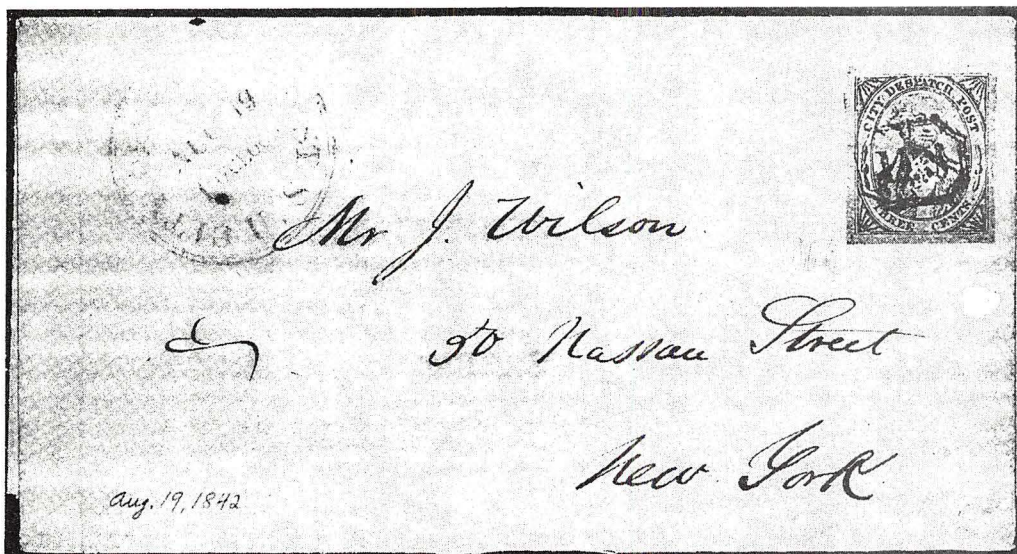 19
CITY DESPATCH POST
THREE CENTS
Mr J. Wilson
50 Nassau Street
New York
Aug. 19, 1842